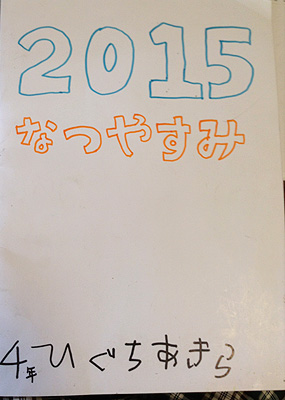 2015
なつやすみ
4年ひぐちあきら